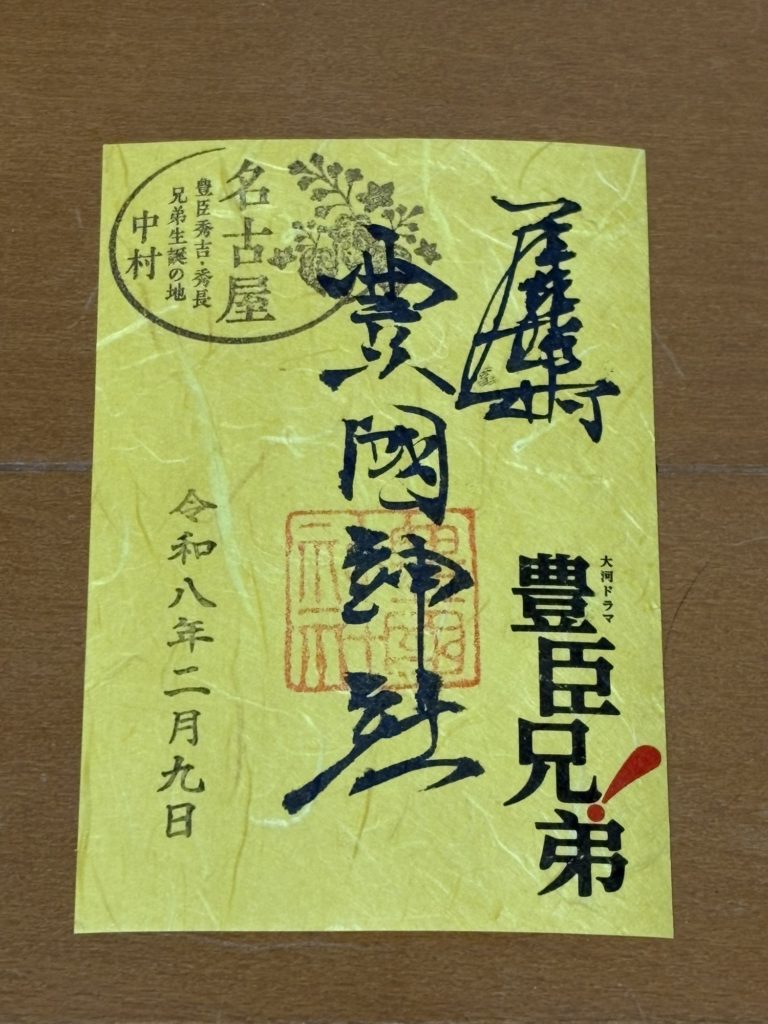 大河ドラマ
豊臣兄弟!
豊國神社
名古屋
豊臣秀吉・秀長
兄弟生誕の地
中村
令和八年二月九日